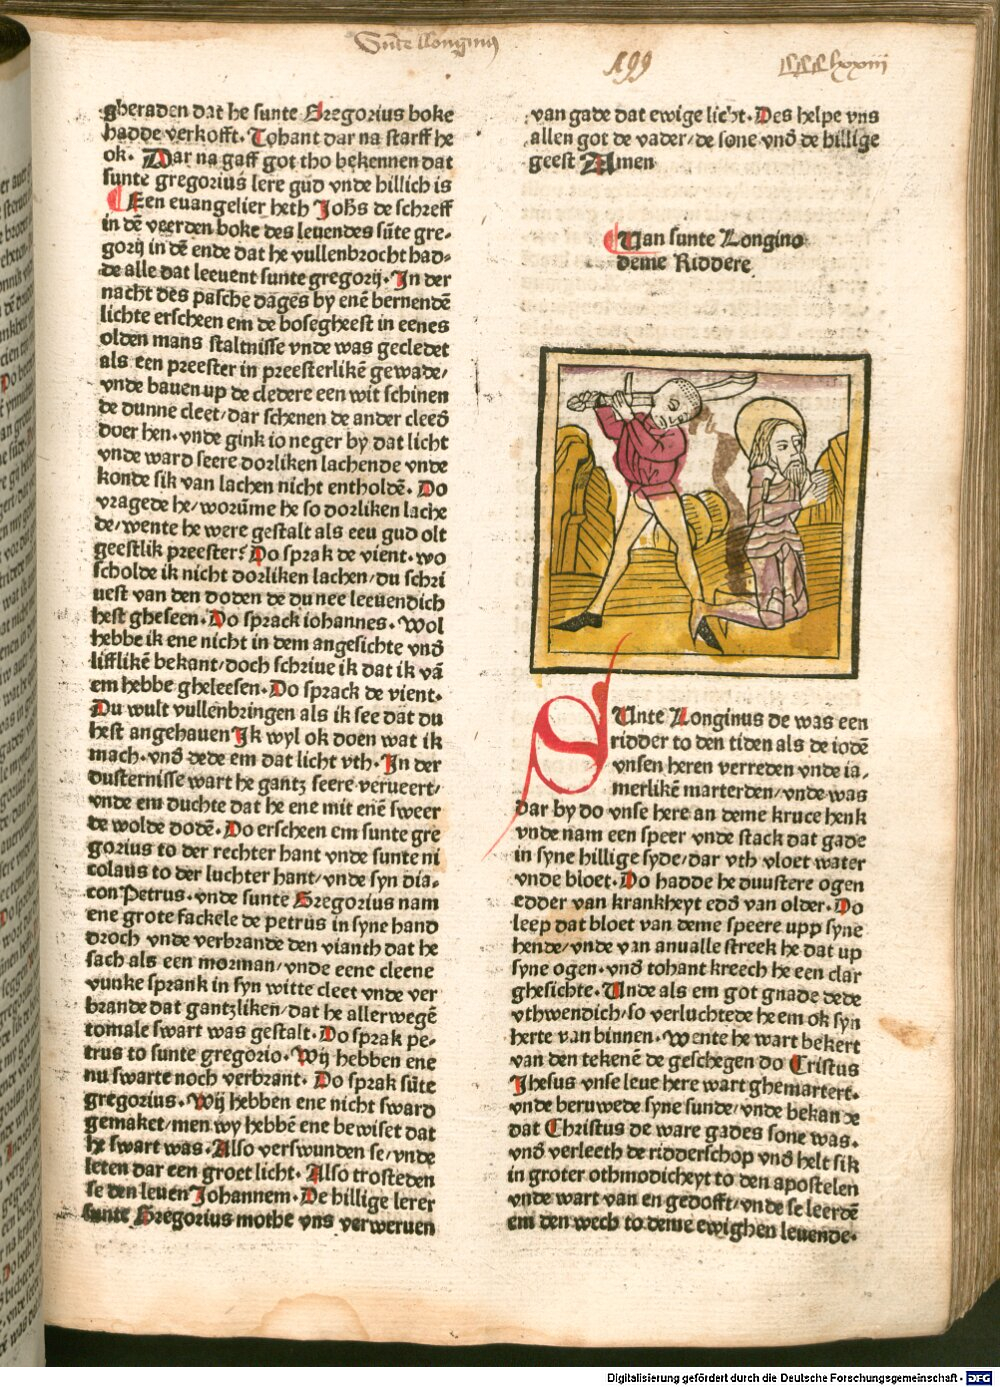 Sūte Longinus
199
gheraden dat he sunte Gregorius boke
hadde verkofft. Tohant dar na starff he
ok. Dar na gaff got tho bekennen dat
sunte gregorius lere gud vnde hillich is
Een euangelier heth Johēs de schreff
in dē veerden boke des leuendes sūte gre-
gorij in dē ende dat he vullenbrocht had-
de alle dat leeuent sunte gregorij. In der
nacht des pasche dages by enē bernendē
lichte erscheen em de bosegheest in eenes
olden mans staltnisse vnde was gecledet
als een preester in preesterlikē gewade/
vnde bauen up de cledere een wit schinen
de dunne cleet/dar schenen de ander cleed
doer hen. vnde gink io neger by dat licht
vnde ward seere dorliken lachende vnde
konde sik van lachen nicht entholdē. Do
vragede he/worūme he so dorliken lache
de/wente he were gestalt als eeu gud olt
geestlik preester? Do sprak de vient. wo
scholde ik nicht dorliken lachen/du schri
uest van den doden de du nee leeuendich
hest gheseen. Do sprack iohannes. Wol
hebbe ik ene nicht in dem angesichte vnd
lifflikē bekant/doch schriue ik dat ik vā
em hebbe gheleesen. Do sprack de vient.
Du wult vullenbringen als ik see dat du
hest angehauen Ik wyl ok doen wat ik
mach. vnd dede em dat licht vth. In der
dusternisse wart he gantz seere verueert/
vnde em duchte dat he ene mit enē sweer
de wolde dodē. Do erscheen em sunte gre
gorius to der rechter hant vnde sunte ni
colaus to der luchter hant/vnde syn dia-
con Petrus. vnde sunte Gregorius nam
ene grote fackele de petrus in syne hand
droch vnde verbrande den vianth dat he
sach als een morman/vnde eene cleene
vunke sprank in syn witte cleet vnde ver
brande dat gantzliken/dat he allerwegē
tomale swart was gestalt. Do sprak pe-
trus to sunte gregorio. Wij hebben ene
nu swarte noch verbrant. Do sprak sūte
gregorius. Wij hebben ene nicht sward
gemaket/men wy hebbē ene bewiset dat
he swart was. Also verswunden se/vnde
leten dar een groet licht. Also trosteden
se den leuen Johannem. De hillige lerer
sunte Gregorius mothe vns verweruen
van gade dat ewige licht. Des helpe vns
allen got de vader/de sone vnd de hillige
geest Amen
Uan sunte Longino
deme Riddere
SUnte Longinus de was een
ridder to den tiden als de iodē
vnsen heren verreden vnde ia-
merlikē marterden/vnde was
dar by do vnse here an deme kruce henk
vnde nam een speer vnde stack dat gade
in syne hillige syde/dar vth vloet water
vnde bloet. Do hadde he duustere ogen
edder van krankheyt edd van older. Do
leep dat bloet van deme speere upp syne
hende/vnde van anualle streek he dat up
syne ogen. vnd tohant kreech he een clar
ghesichte. Unde als em got gnade dede
vthwendich/so verluchtede he em ok syn
herte van binnen. Wente he wart bekert
van den tekenē de geschegen do Cristus
Jhesus vnse leue here wart ghemartert.
vnde beruwede syne sunde/vnde bekande
dat Christus de ware gades sone was.
vnd verleeth de ridderschop vnd helt sik
in groter othmodicheyt to den apostelen
vnde wart van en gedofft/vnde se leerdē
em den wech to deme ewighen leuende.
Digitalisierung gefördert durch die Deutsche Forschungsgemeinschaft - DFG